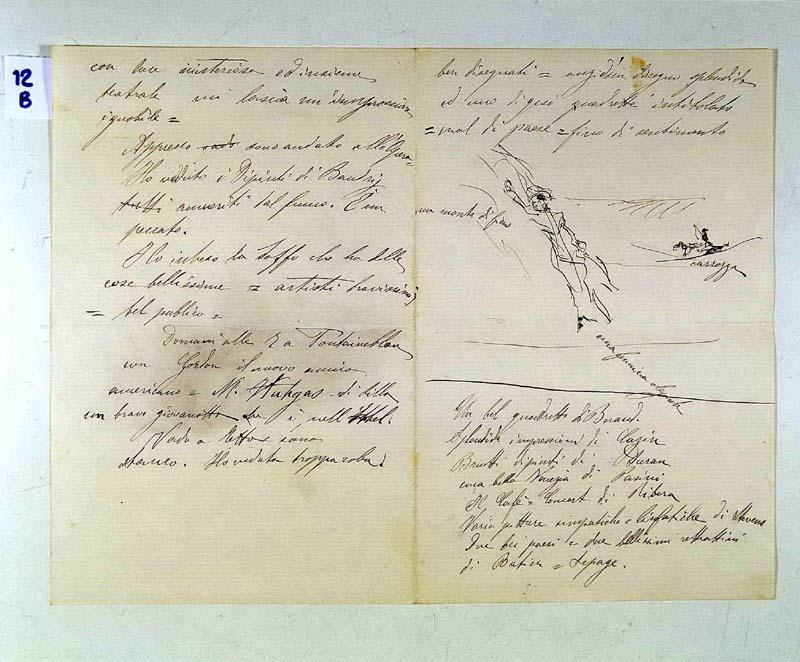 12
B
con luce misteriosa ed insieme
teatrale mi lascia un'impressione
ignobile =
Appresso vado sono andato all'Opera =
Ho veduto i Dipinti di Baudry
tutti anneriti dal fumo. È un
peccato.
Ho inteso la Saffo che ha delle
cose bellissime = artisti bravissimi
= bel publico =
Domani alle 7 a Fontainebleau
con Gordon il nuovo amico
americano e M.
un bravo giovanotto che è nell'Hotel.
Vado a letto e sono
stanco. Ho veduto troppa roba.
ben disegnati = anzi di un disegno splendido
ed uno di quei quadretti intitolato
= mal di paese = fino di sentimento
un monte di
carrozza
una
Un bel quadretto di Beraud.
Splendide impressioni di Cazin
Brutti dipinti di Duran
una bella Venezia di Pasini
Il Café Concert di Ribera
Varie pitture simpatiche e di Stevens
Due bei paesi e due bellissimi ritrattini
di Bastien = Lepage.